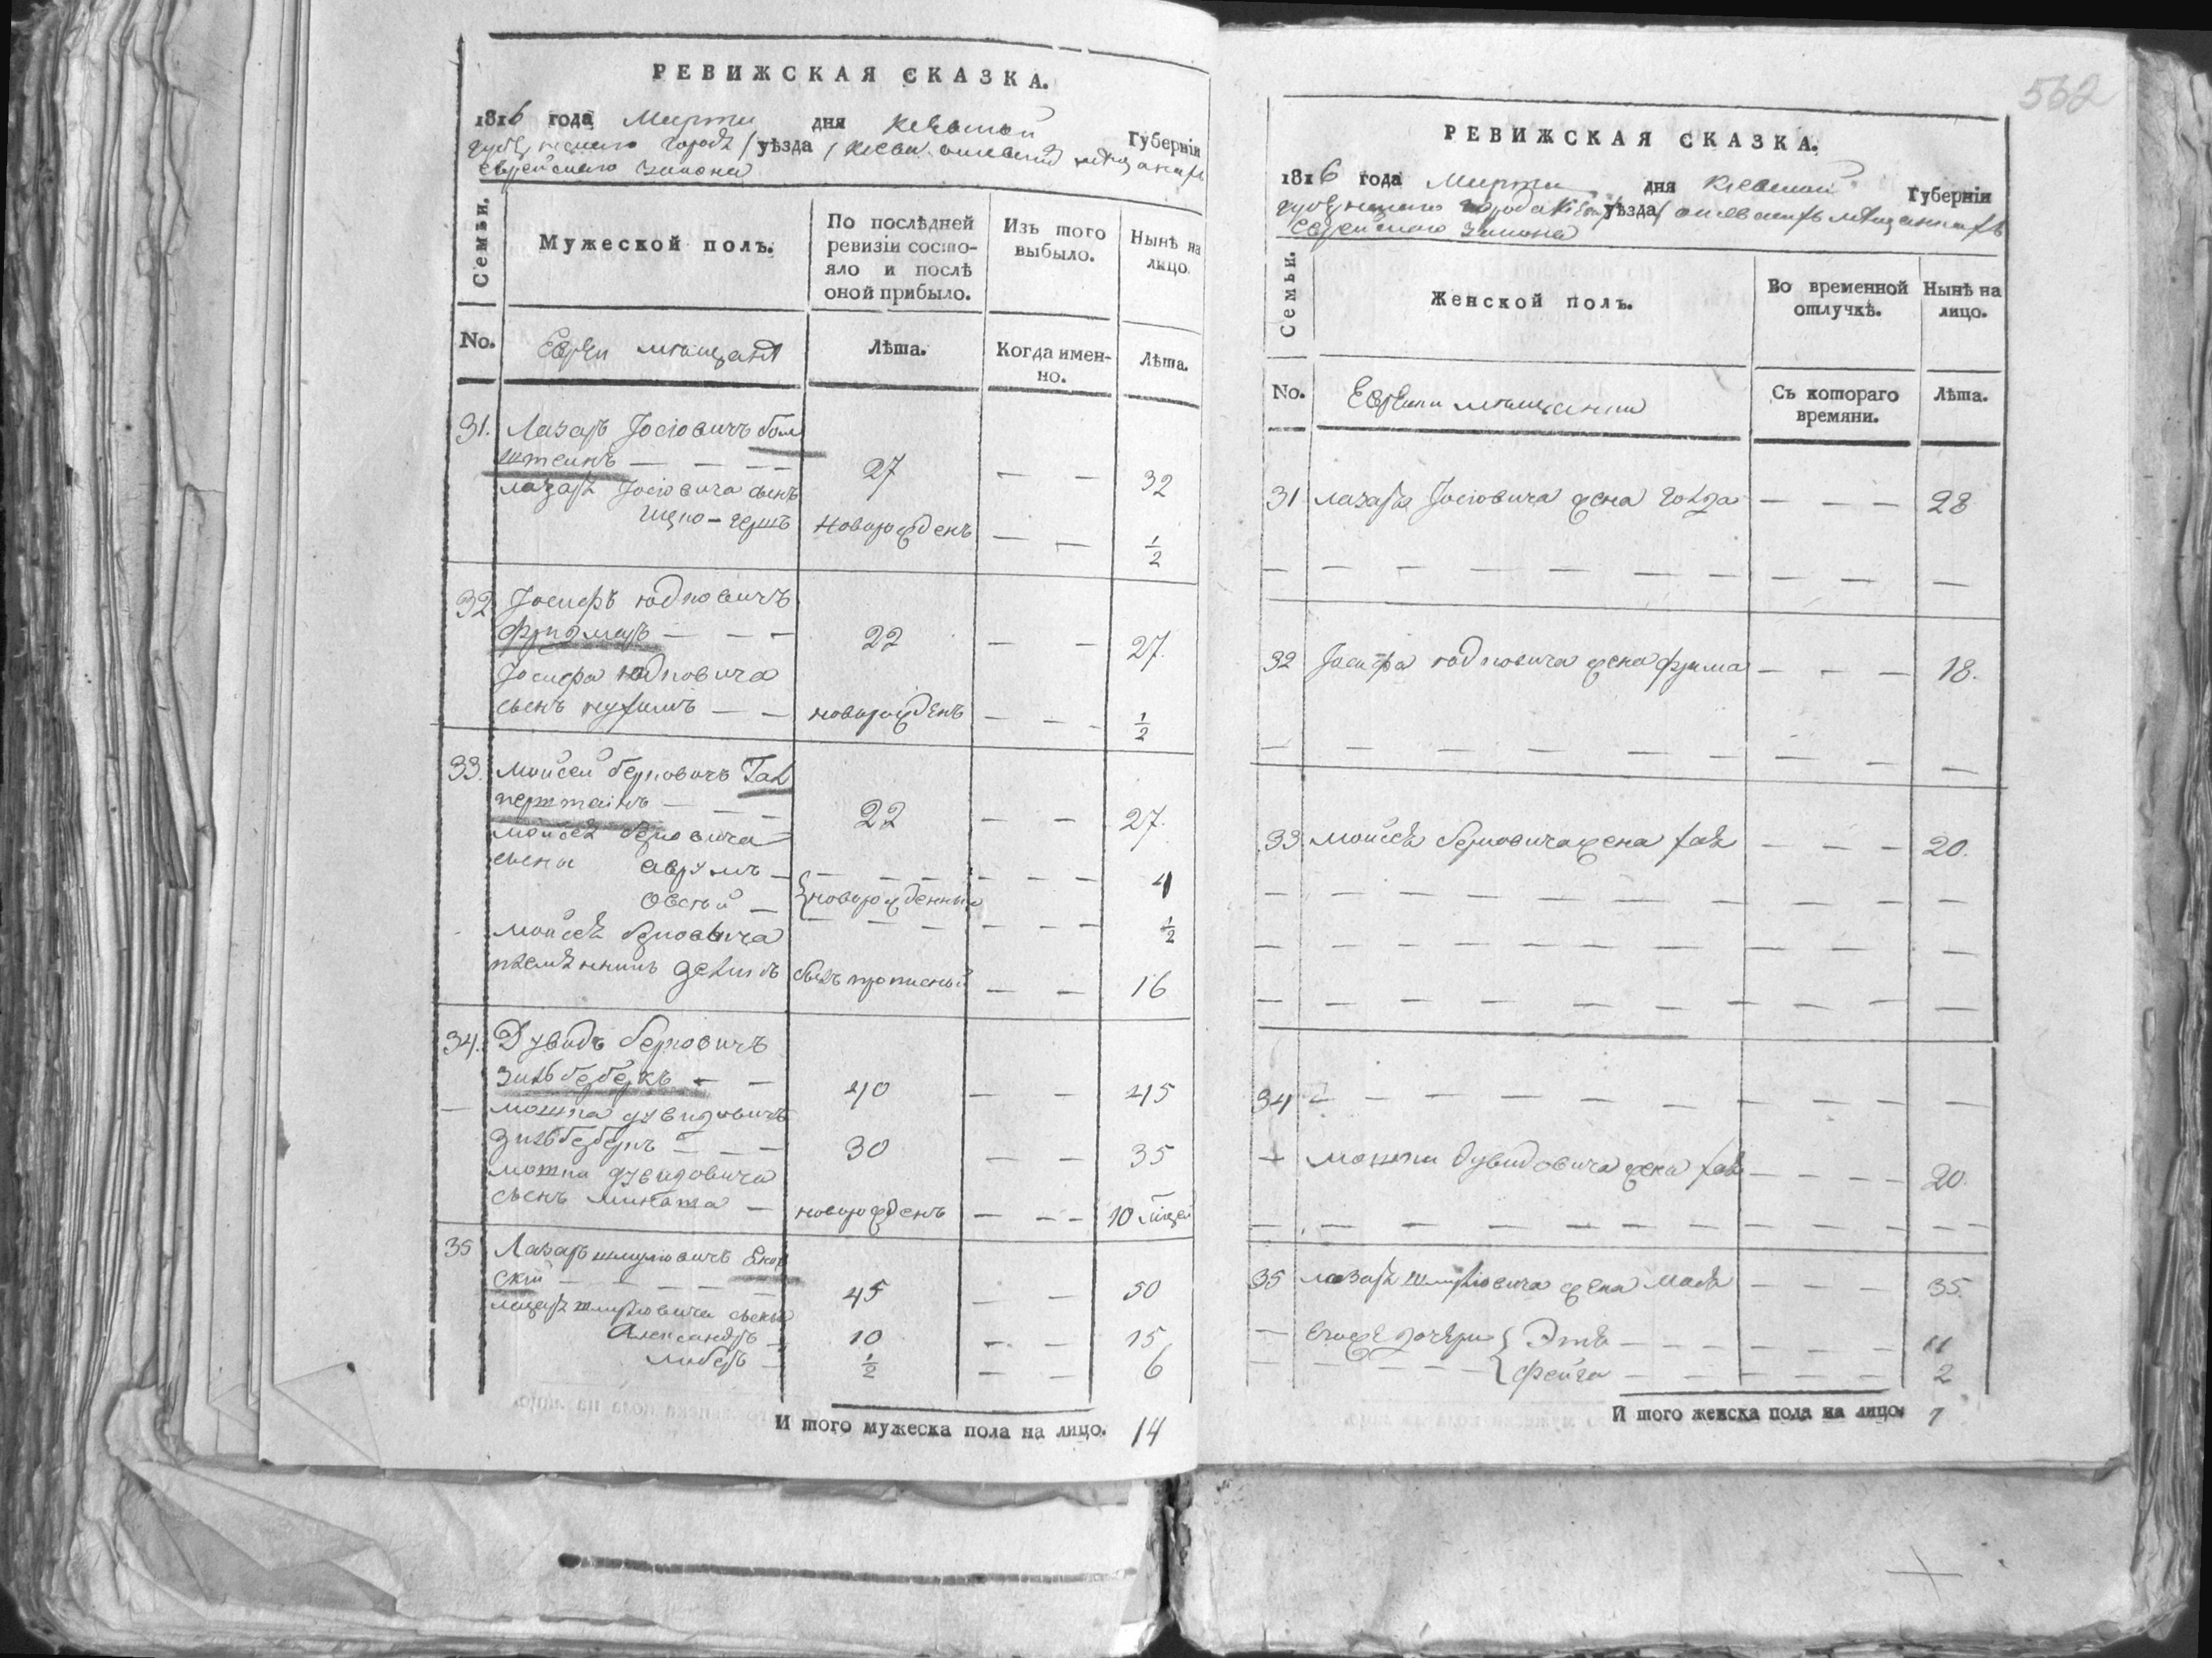 РЕВИЖСКАЯ СКАЗКА.
1816 года Марта дня Киевской Губерніи
города уѣзда
Еврейскаго закона
Семьи.
Мужеской полъ.
По послѣдней ревизіи состо-
яло и послѣ оной прибыло.
Изъ того выбыло.
Нынѣ на лицо.
No.
Евреи мещане
Лѣта.
Когда имен-
но.
Лѣта.
31. Лазарь Іосіовичъ Бол
штеинъ — — — 27 — — 32
Лазаря Іосіовича сынъ
Ицко-Гершъ новорожденъ — — 1/2
32 Іосифъ Юдковичъ
— — — 22 — — 27.
Іосифа Юдковича
сынъ — — новорожденъ — — — 1/2
33. Мойсей Берковичъ Гал
перштаинъ — — — 22 — — 27.
Мойсея Берковича
сыны Аврумъ — — — — — — — 4
Овсѣй — { новорожденныи — — — 1/2
Мойсея Берковича
племѣнникъ былъ прописный — — 16
34. Дувидъ Берковичъ
Зильберберкъ — — 40 — — 45
— Мошка Дувидовичъ
Зильберберкъ — — — 30 — — 35
Мошки Дувидовича
сынъ — новорожденъ — — — 10
35 Лазарь Шмулиовичъ
скій — — — — — 45 — — 50
Лазаря Шмулиовича сыны
Александръ — 10 — — 15
Либеръ — 1/2 — — 6
И того мужеска пола на лицо. 14
562
РЕВИЖСКАЯ СКАЗКА.
1816 года Марта дня Киевской Губерніи
города уѣзда
Еврейскаго закона
Семьи.
Женской полъ.
Во временной отлучкѣ.
Нынѣ на лицо.
No.
Еврейки мещанки
Съ котораго
времяни.
Лѣта.
31 Лазаря Іосіовича жена Голда — — — 28
— — — — — — — — — — —
32 Іосифа Юдковича жена Фрима — — — 18.
— — — — — — — — — —
33 Мойсея Берковича жена Хая — — — 20.
— — — — — — — — — — —
— — — — — — — — — — —
— — — — — — — — — — —
34 — — — — — — — — — —
+ Мошки Дувидовича жена Хая — — — — 20.
— — — — — — — — — — —
35 Лазаря Шмулиовича жена Маля — — — 35.
— Егоже дочери { Этя — — — — — — — 11
— — — — — { Фейга — — — — — — 2
И того женска пола на лицо. 7